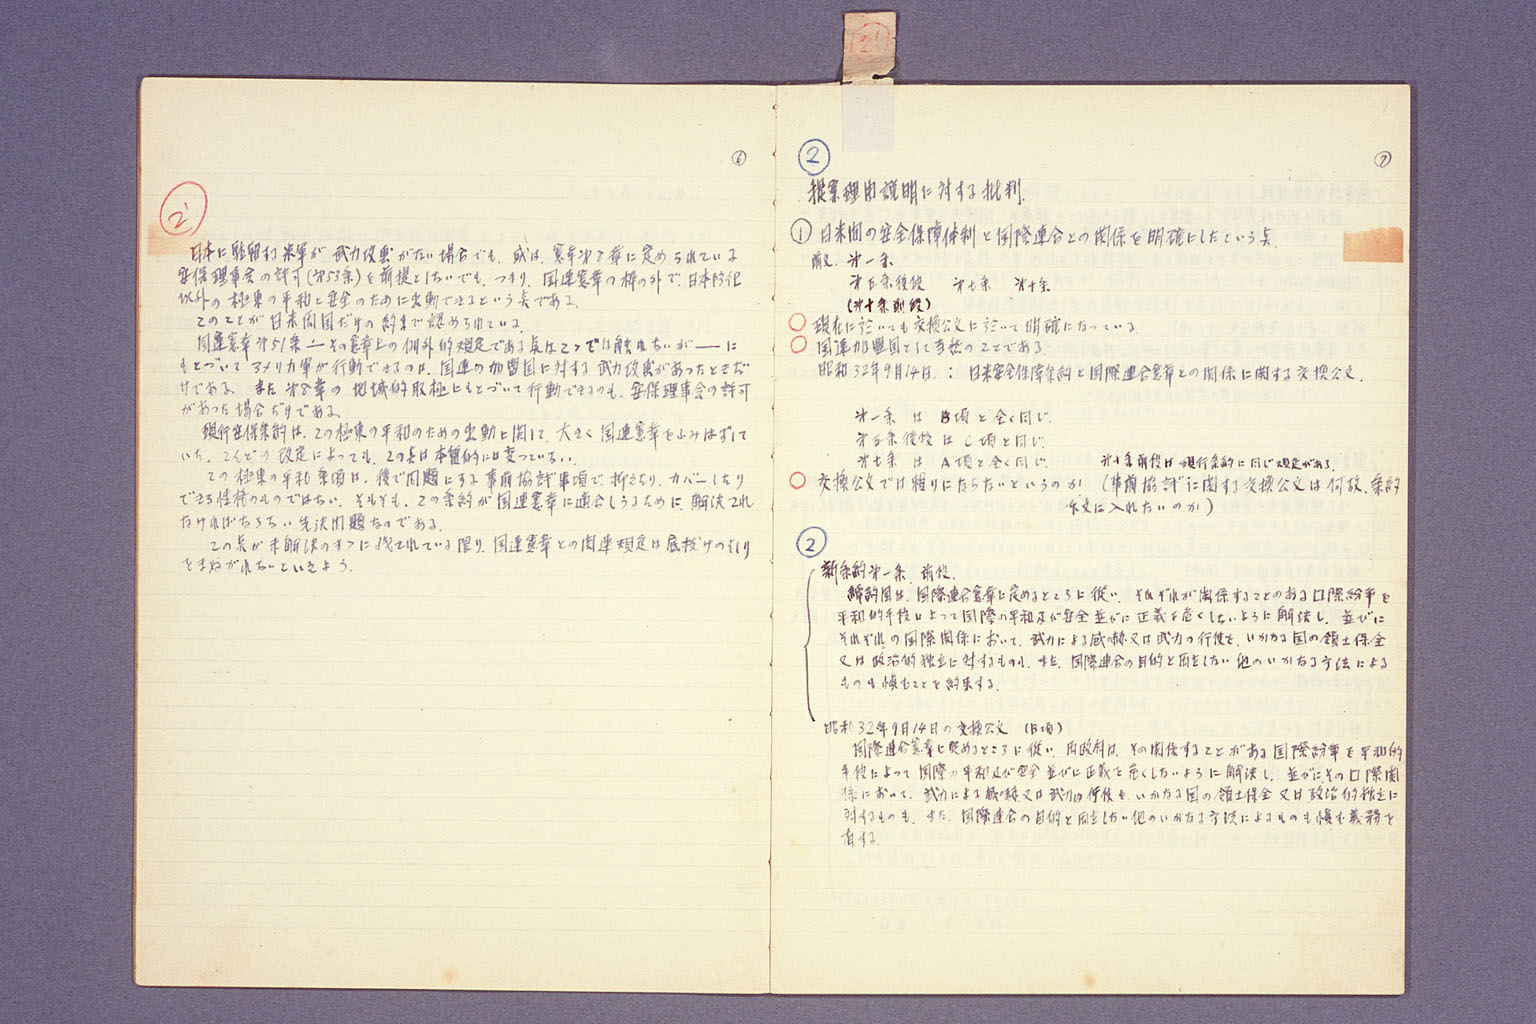 2'
6
2'
日本に駐留する米軍が、武力攻撃がない場合でも、或は、憲章第7章に定められている
安保理事会の許可(第53条)を前提としないでも、つまり、国連憲章の枠の外で、日本防衛
以外の極東の平和と安全のために出動できるという点である。
このことが日米両国だけの約束で認められている。
国連憲章第51条―その憲章上の例外的規定である点はここでは触れないが―に
もとづいてアメリカ軍が行動できるのは、国連の加盟国に対する武力攻撃があったときだ
けである。また第8章の地域的取極にもとづいて行動できるのも、安保理事会の許可
があった場合だけである。
現行安保条約は、この極東の平和のための出動に関して、大きく国連憲章をふみはずして
いた。こんどの改定によっても、この点は本質的には変っていない。
この極東の平和条項は、後で問題にする事前協議事項で、カバーしたり
できる性格のものではない。そもそも、この条約が国連憲章に適合しうるために、解決され
なければならない先決問題なのである。
この点が未解決のまゝに残されている限り、国連憲章との関連規定は底抜けのそしり
をまぬがれないといえよう。
7
2
提案理由説明に対する批判
1 日米間の安全保障体制と国際連合との関係を明確にしたという点
前文、第一条
第五条後段 第七条 第十条
(第十条前段)
○ 現在に於いても交換公文に於いて明確になっている。
○ 国連加盟国として当然のことである。
昭和32年9月14日.: 日米安全保障条約と国際連合憲章との関係に関する交換公文.
第一条 は B項と全く同じ.
第五条後段は C項と同じ.
第七条 は A項と全く同じ. 第十条前段は現行条約に同じ規定がある.
○ 交換公文では頼りにならないというのか (事前協議に関する交換公文は何故、条約
本文に入れないのか)
2
新条約第一条 前段.
締約国は、国際連合憲章に定めるところに従い、それぞれが関係することのある国際紛争を
平和的手段によって国際の平和及び安全並びに正義を危くしないように解決し、並びに
それぞれの国際関係において、武力による威嚇又は武力の行使を、いかなる国の領土保全
又は政治的独立に対するものも、また、国際連合の目的と両立しない他のいかなる方法による
ものも慎むことを約束する.
昭和32年9月14日の交換公文 (B項)
国際連合憲章に定めるところに従い、両政府は、その関係することがある国際紛争を平和的
手段によって国際の平和及び安全並びに正義を危くしないように解決し、並びにその国際関
係において、武力による威嚇又は武力の行使を、いかなる国の領土保全又は政治的独立に
対するものも、また、国際連合の目的と両立しない他のいかなる方法によるものも慎む義務を
有する.